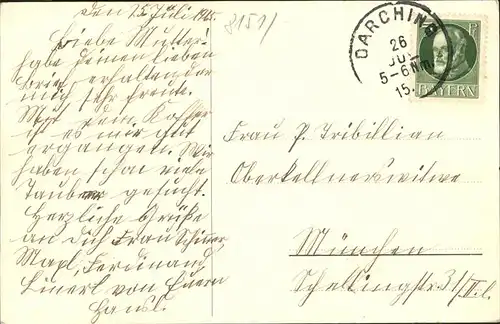 den 25 Juli 1915.
Liebe Mutter
habe deinen lieben
Brief erhalten der
mich sehr freute.
Mit dem Koffer
ist es mir gut
ergangen. Wir
haben schon viele
Tauben gesucht.
Herzliche Grüße
an Dich Frau
Mapl, Ferdinand
Linerl von Euern
Hansl.
8151/
DARCHING
26
JUL
5-6 Nm.
15.
BAYERN
Frau P. Tribillian
Oberkellnerswitwe
München
Schellingstr. 31/II. l.